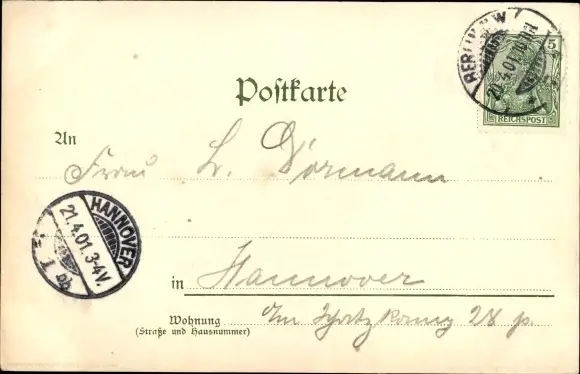 BERLIN N.W.
21.4.01.10-11V.
5
REICHSPOST
Postkarte
An
Frau L. Dormann
HANNOVER
21.4.01.3-4V.
1
in Hannover
Wohnung
(Straße und Hausnummer)
Am 28 p.